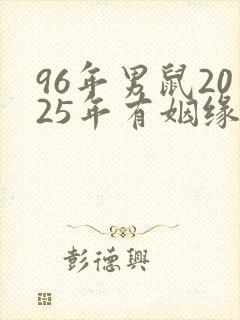 96年男鼠20
25年有姻缘
彭德兴